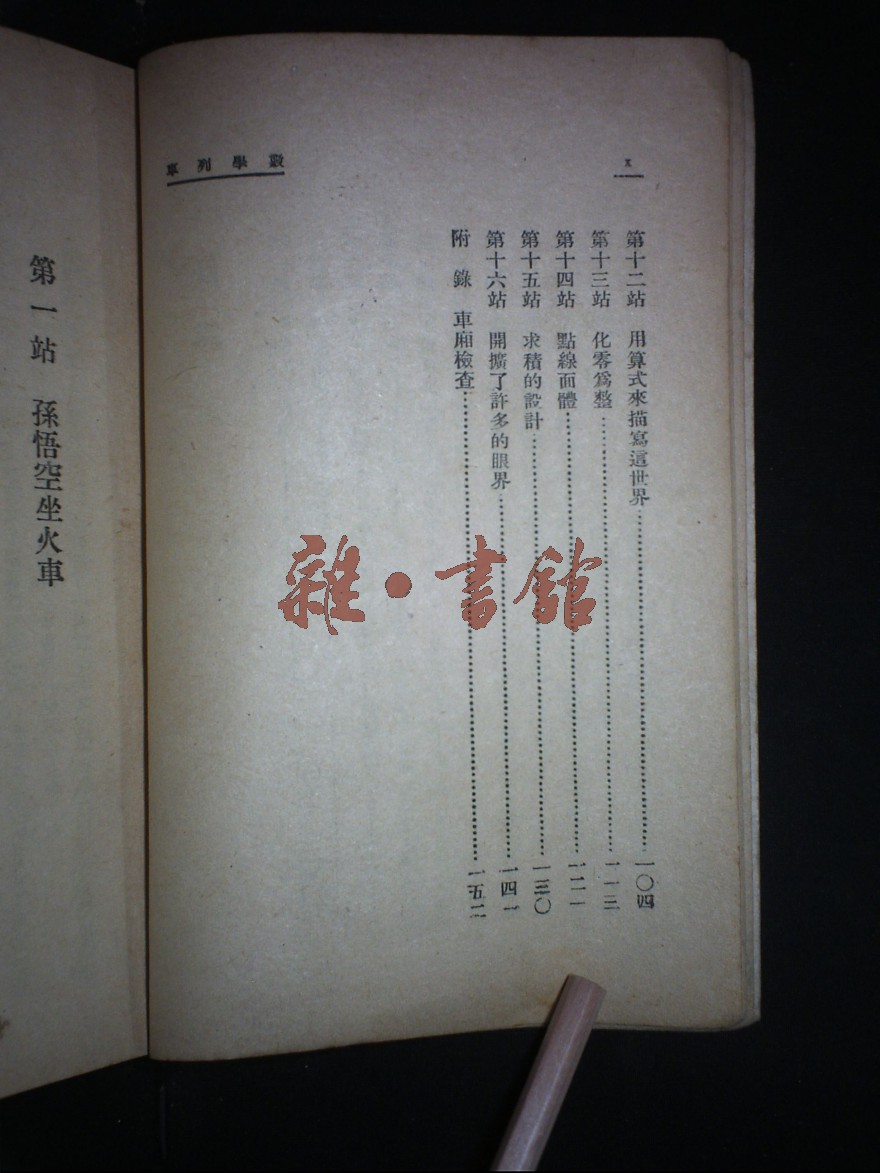 數學列車
x
第十二站 用算式來描寫這世界……一〇四
第十三站 化零爲整……一一三
第十四站 點線面體……一二一
第十五站 求積的設計……一三〇
第十六站 開擴了許多的眼界……一四一
附錄 車廂檢查……一五二
第一站 孫悟空坐火車
雜·書館